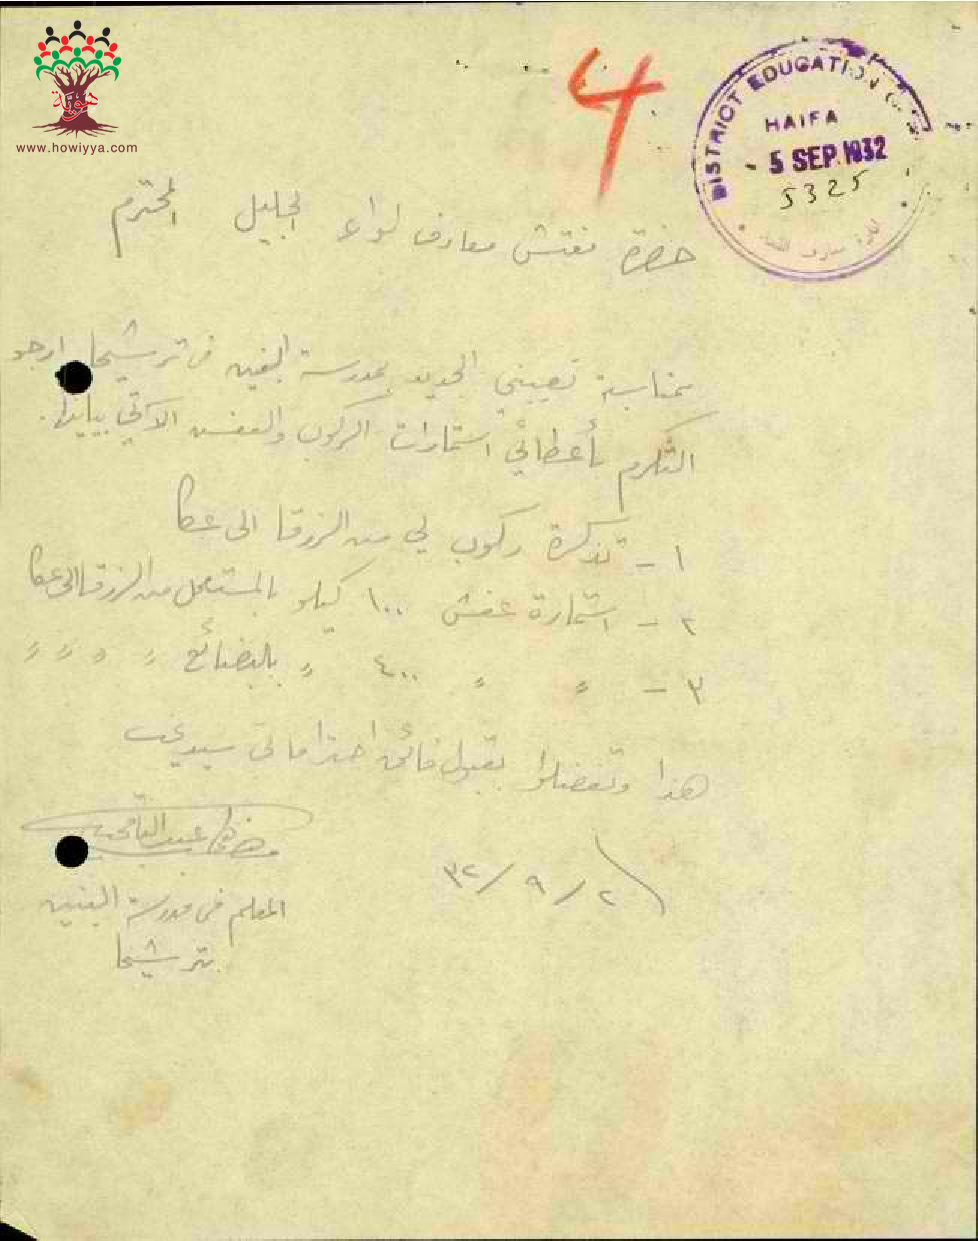 هوية
www.howiyya.com
4
DISTRICT EDUCATION
HAIFA
- 5 SEP. 1932
5325
حضرة مفتش معارف لواء الجليل المحترم
بمناسبة تعييني الجديد بمدرسة البنين في ترشيحا ارجو
التكرم بأعطائي استمارات الركوب والعفش الآتي بيانها.
١ - تذكرة ركوب لي من الزرقا الى عكا
٢ - استمارة عفش ١٠٠ كيلو بالمستعجل من الزرقا الى عكا
٣ - " " ٤٠٠ " بالبضائع " " " "
هذا وتفضلوا بقبول فائق احتراماتي سيدي
٣٢/٩/٢
المعلم في مدرسة البنين
بترشيحا